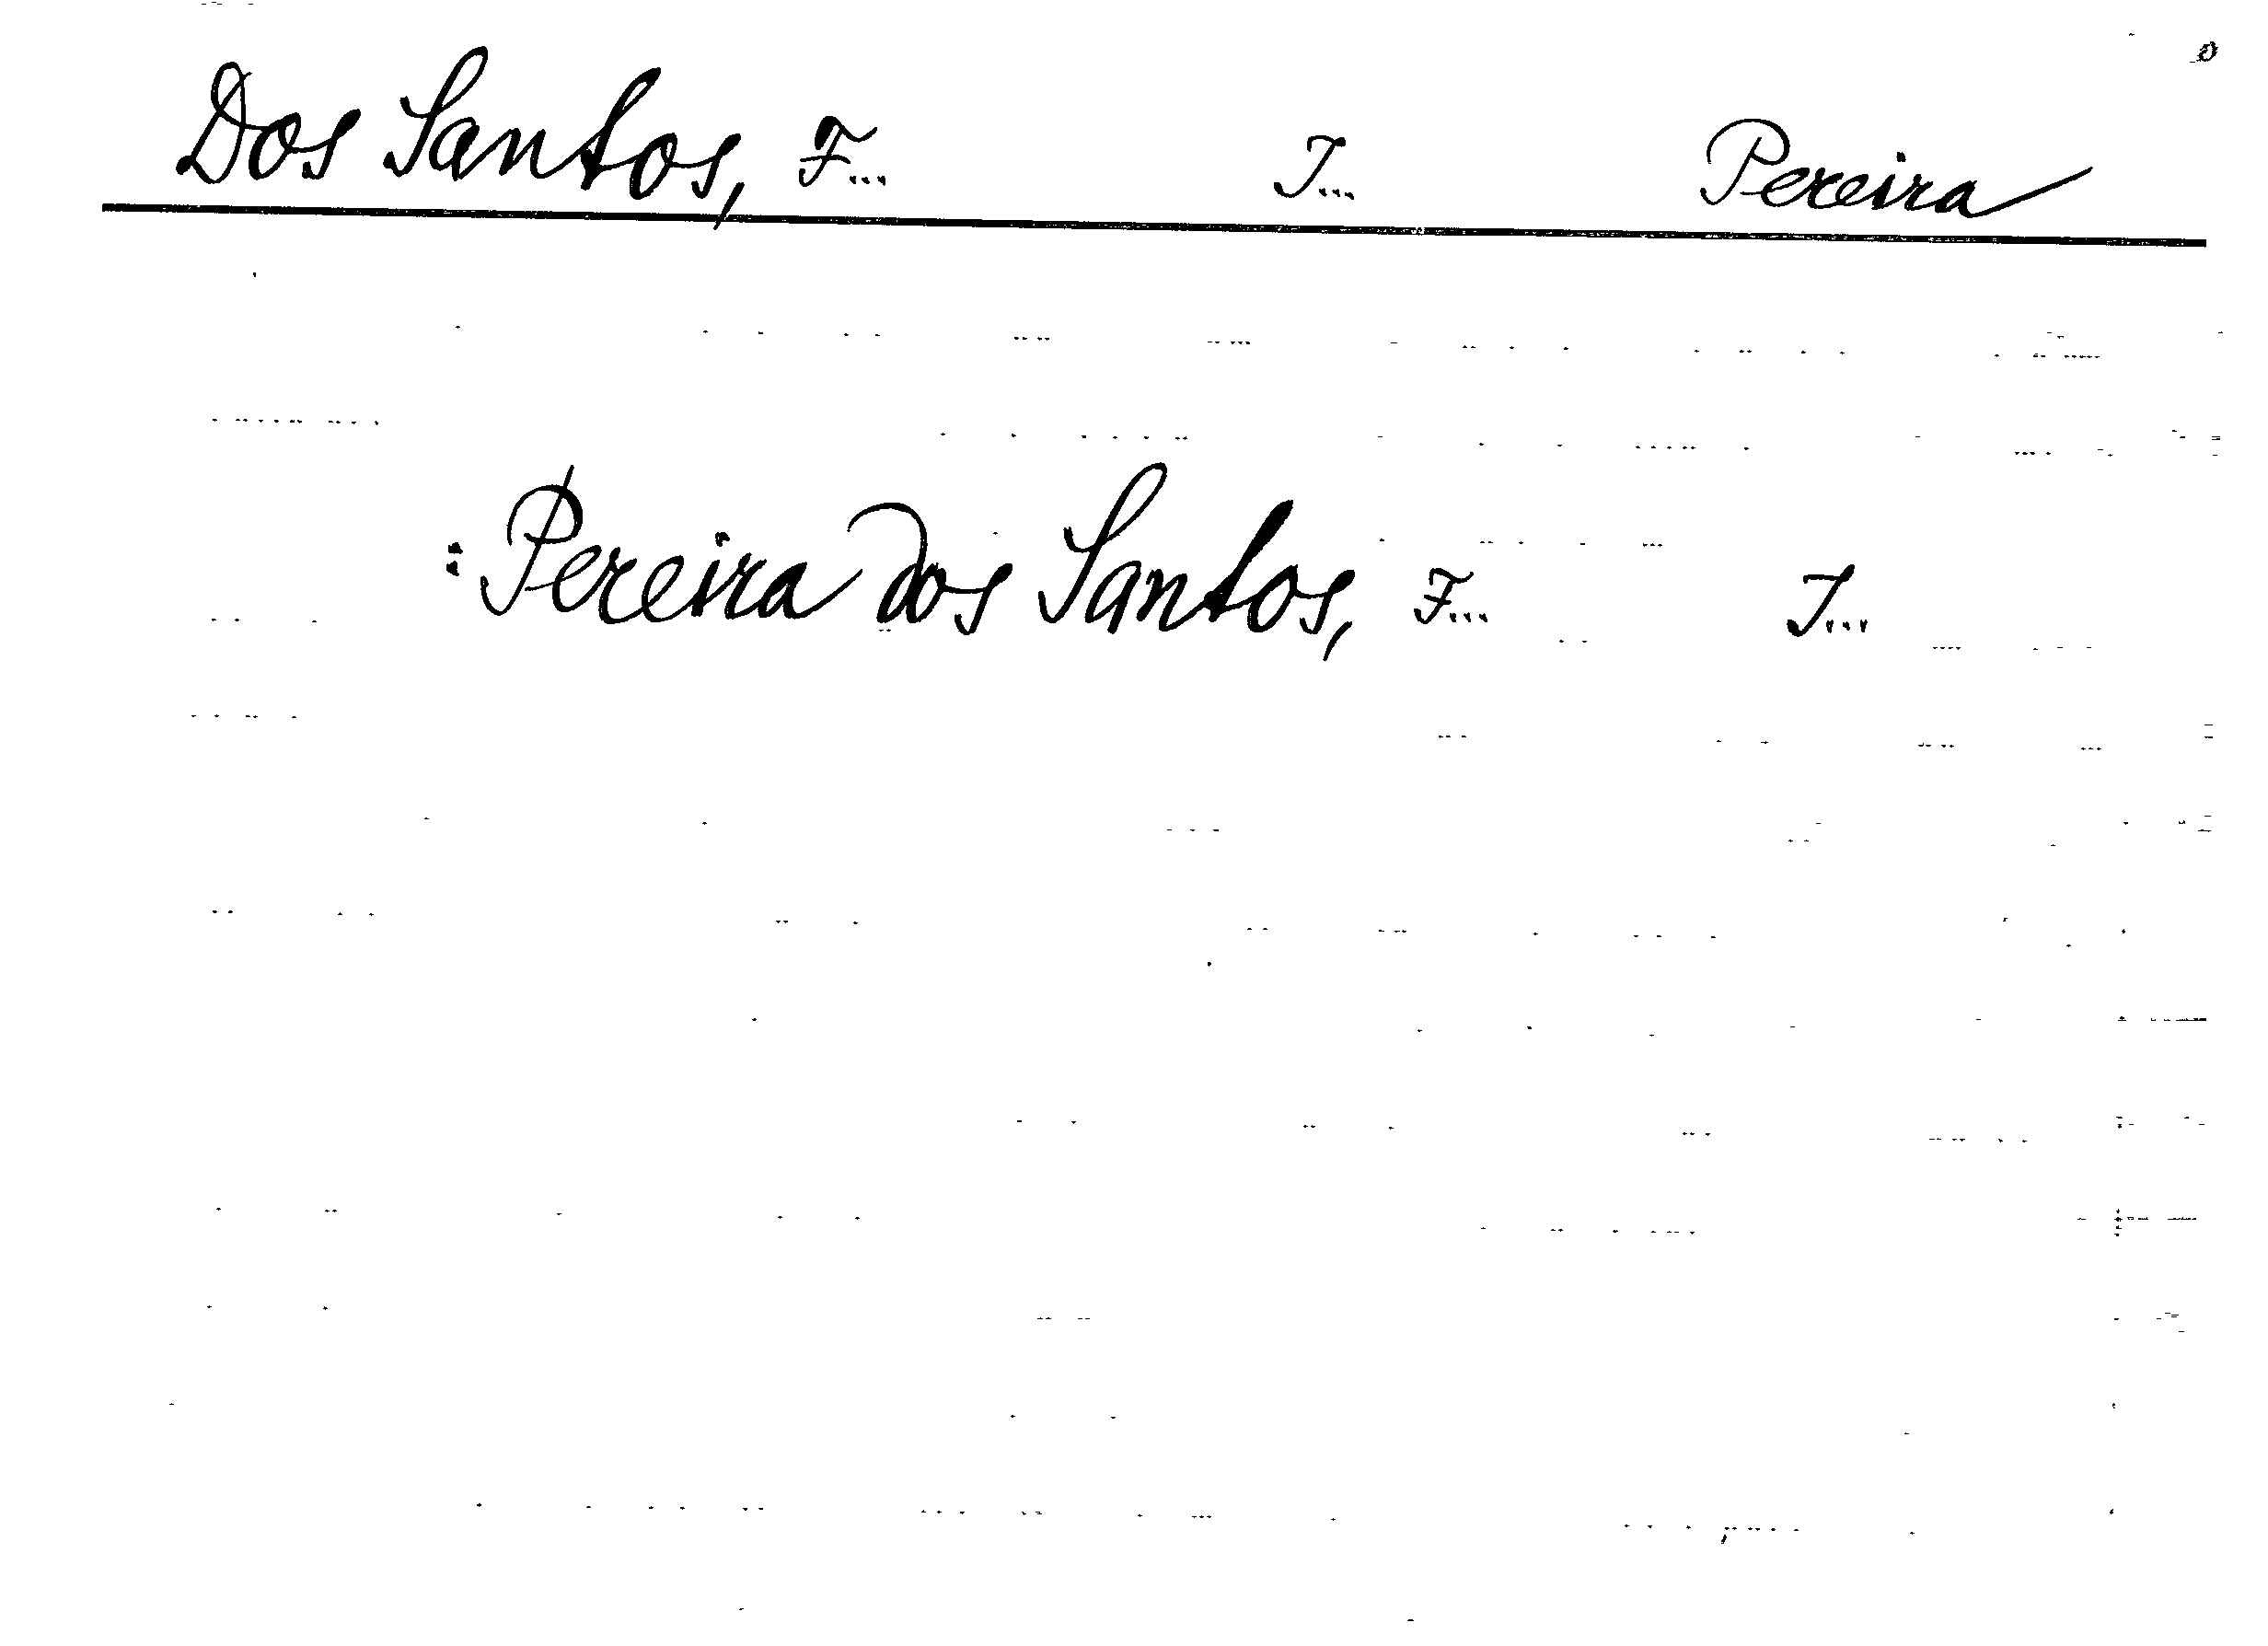 Dos Santos, F... J... Pereira
: Pereira dos Santos, F... J...